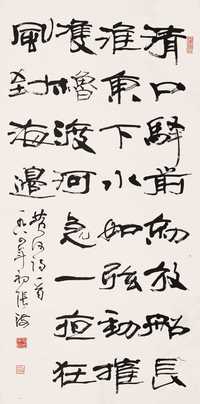 清口驛前初放船長
淮東下水如弦勁催
雙櫓渡河急一夜狂
風到海邊
黄河詩一首
一九八四年初張海